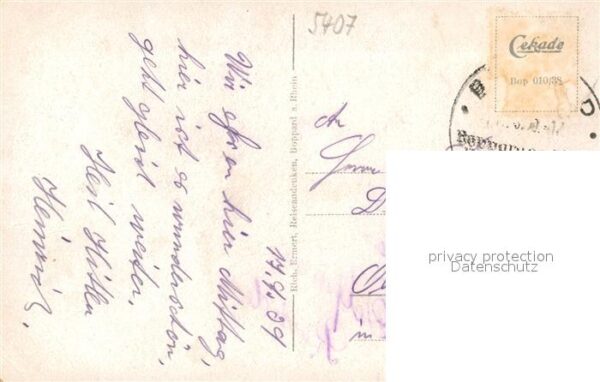 5407
Cekade
Bop 010/38
Boppard
Wir essen hier Mittag,
hier ist es wunderschön,
geht gleich weiter.
Heil Hitler
Heinrich.
14.9.39
Rich. Ermert, Reiseandenken, Boppard a. Rhein
An
Herrn
D
in
privacy protection
Datenschutz